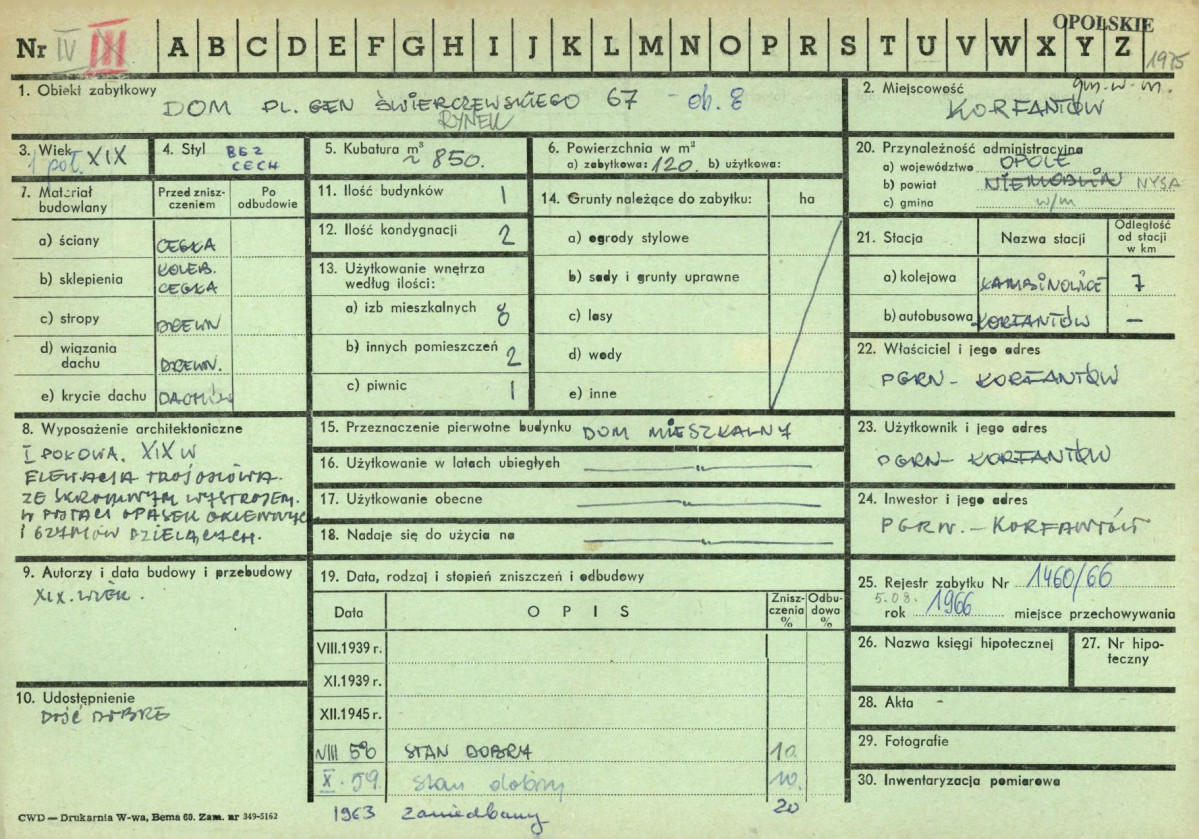 OPOLSKIE
Nr IV III A B C D E F G H I J K L M N O P R S T U V W X Y Z
1975
1. Obiekt zabytkowy DOM PL. GEN ŚWIERCZEWSKIEGO 67 - ob. 8
RYNEK
2. Miejscowość gm-w-m.
KORFANTÓW
3. Wiek 1 poł. XIX
4. Styl BEZ CECH
5. Kubatura m³ ~ 850.
6. Powierzchnia w m²
a) zabytkowa: 120. b) użytkowa:
20. Przynależność administracyjna
a) województwo OPOLE
b) powiat NIEMODLIN NYSA
c) gmina w/m
7. Materiał budowlany
Przed zniszczeniem
Po odbudowie
a) ściany CEGŁA
b) sklepienia KOLEB. CEGŁA
c) stropy DREWN
d) wiązania dachu DREWN.
e) krycie dachu DACHÓW
11. Ilość budynków 1
12. Ilość kondygnacji 2
13. Użytkowanie wnętrza według ilości:
a) izb mieszkalnych 8
b) innych pomieszczeń 2
c) piwnic 1
14. Grunty należące do zabytku: ha
a) ogrody stylowe
b) sady i grunty uprawne
c) lasy
d) wody
e) inne
21. Stacja Nazwa stacji Odległość od stacji w km
a) kolejowa ŁAMBINOWICE 7
b) autobusowa KORFANTÓW —
22. Właściciel i jego adres
PGRN - KORFANTÓW
8. Wyposażenie architektoniczne
I POŁOWA. XIX W
ELEWACJA TRÓJOSIOWA.
ZE SKROMNYM WYSTROJEM.
W POSTACI OPASEK OKIENNYCH
I GZYMSÓW DZIELĄCYCH.
15. Przeznaczenie pierwotne budynku DOM MIESZKALNY
16. Użytkowanie w latach ubiegłych
17. Użytkowanie obecne
18. Nadaje się do użycia na
23. Użytkownik i jego adres
PGRN - KORFANTÓW
24. Inwestor i jego adres
PGRN. - KORFANTÓW
9. Autorzy i data budowy i przebudowy
XIX. WIEK.
10. Udostępnienie
DOŚĆ DOBRE
19. Data, rodzaj i stopień zniszczeń i odbudowy
Data OPIS Zniszczenia % Odbudowa %
VIII.1939 r.
XI.1939 r.
XII.1945 r.
VIII 50 STAN DOBRY 10.
X. 59. stan dobry 10.
1963 zaniedbany 20
25. Rejestr zabytku Nr 1460/66
5.08.
rok 1966 miejsce przechowywania
26. Nazwa księgi hipotecznej
27. Nr hipoteczny
28. Akta -
29. Fotografie
30. Inwentaryzacja pomiarowa
CWD — Drukarnia W-wa, Bema 60. Zam. nr 349-5162